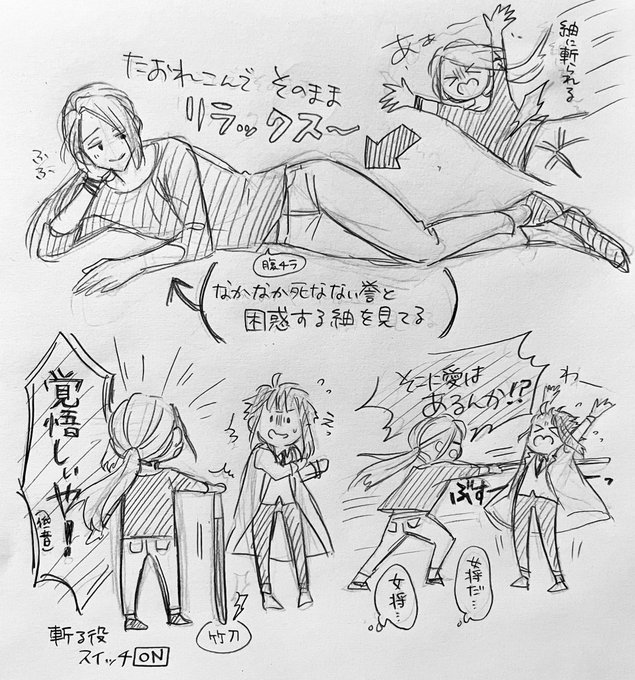 紬に斬られる
あぁ
たおれこんで そのまま
リラックス〜
ふふ
腹チラ
なかなか死なない誉と
困惑する紬を見てる
覚悟しいや!
(低音)
竹刀
斬る役
スイッチON
そこに愛は
あるんか!?
わー
ぶすー
女将だ…
女将…